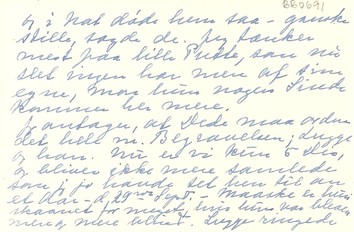 BB0691
og i Nat døde hun saa - ganske
stille, sagde de. Jeg tænker
mest paa lille Putte, som nu
slet ingen har mere af sine
egne, mon hun nogen Sinde
kommer her mere.
Jeg antager, at Dede maa ordne
det hele m. Begravelsen; Lugge
og han. Nu er vi kun 6 Dis,
og bliver ikke mere samlede
som vi jo havde set hen til an-
et Aar - d. 29nde Sept. - Maaske er hun
skaanet for meget, hvis hun var bleven
mere og mere blind. Lugge ringede